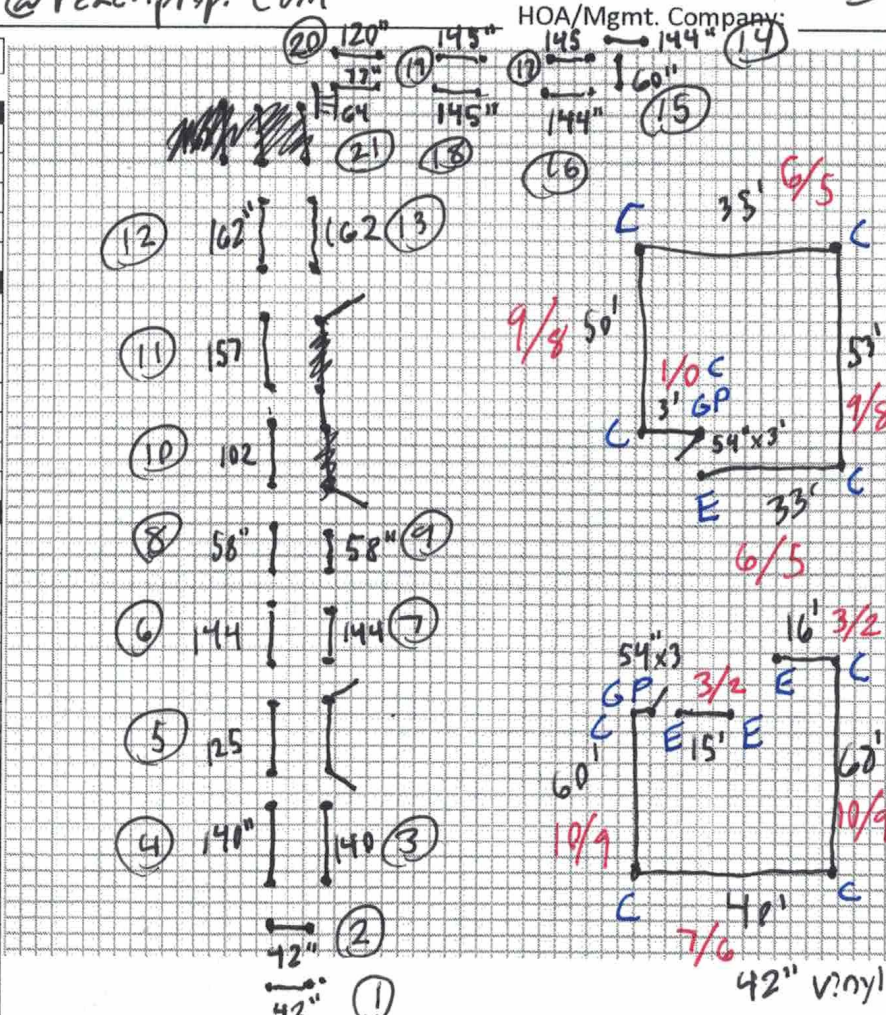 HOA/Mgmt. Company:
20 120" 145" 145 144" 14
77" 19 17 60"
64 145" 144" 15
21 18 16
12 162" 162 13
11 157
10 102
8 58" 58" 9
6 144 144 7
5 125
4 140" 140 3
42" 2
42" 1
35' 6/5
C C
9/8 50' 53'
1/0 C 9/8
3' GP
C 54" x 3'
E 33' C
6/5
16' 3/2
54" x 3 E C
GP 3/2
C E 15' E
60' 60'
10/9 10/9
C 40' C
7/6
42" vinyl